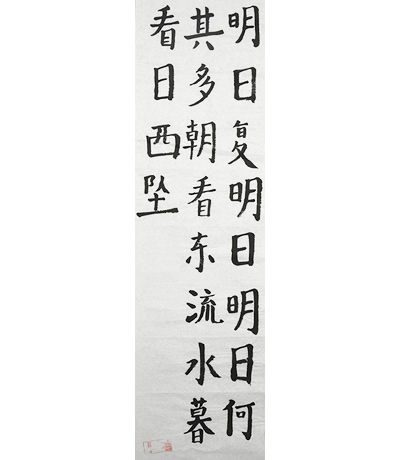 明日复明日明日何
其多朝看东流水暮
看日西坠